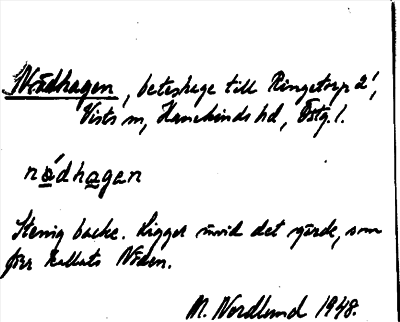 Nödhagen, beteshage till Ringetorp 2¹,
Vists sn, Hanekinds hd, Östg. l.
nǻdhagan
Stenig backe. Ligger invid det gärde, som
förr kallats Nöden.
M. Nordlund 1948.